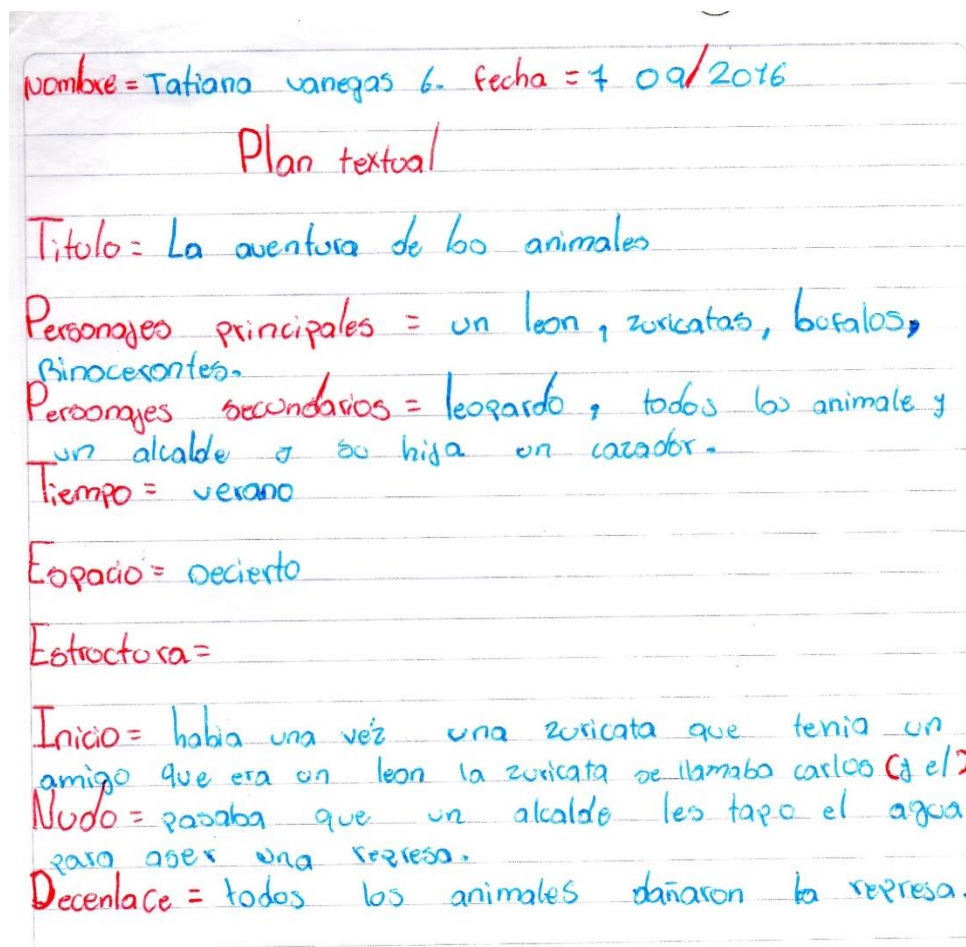 Nombre = Tatiana vanegas 6. fecha = 7 09/2016
Plan textual
Titulo = La aventura de los animales
Personajes principales = un leon, zuricatas, bufalos,
Rinocerontes.
Personajes secundarios = leopardo, todos los animale y
un alcalde y su hija un cazador.
Tiempo = verano
Espacio = decierto
Estructura =
Inicio = habia una véz una zuricata que tenia un
amigo que era un leon la zuricata se llamaba carlos (y el
Nudo = pasaba que un alcalde les tapo el agua
para aser una represa.
Decenlace = todos los animales dañaron la represa.